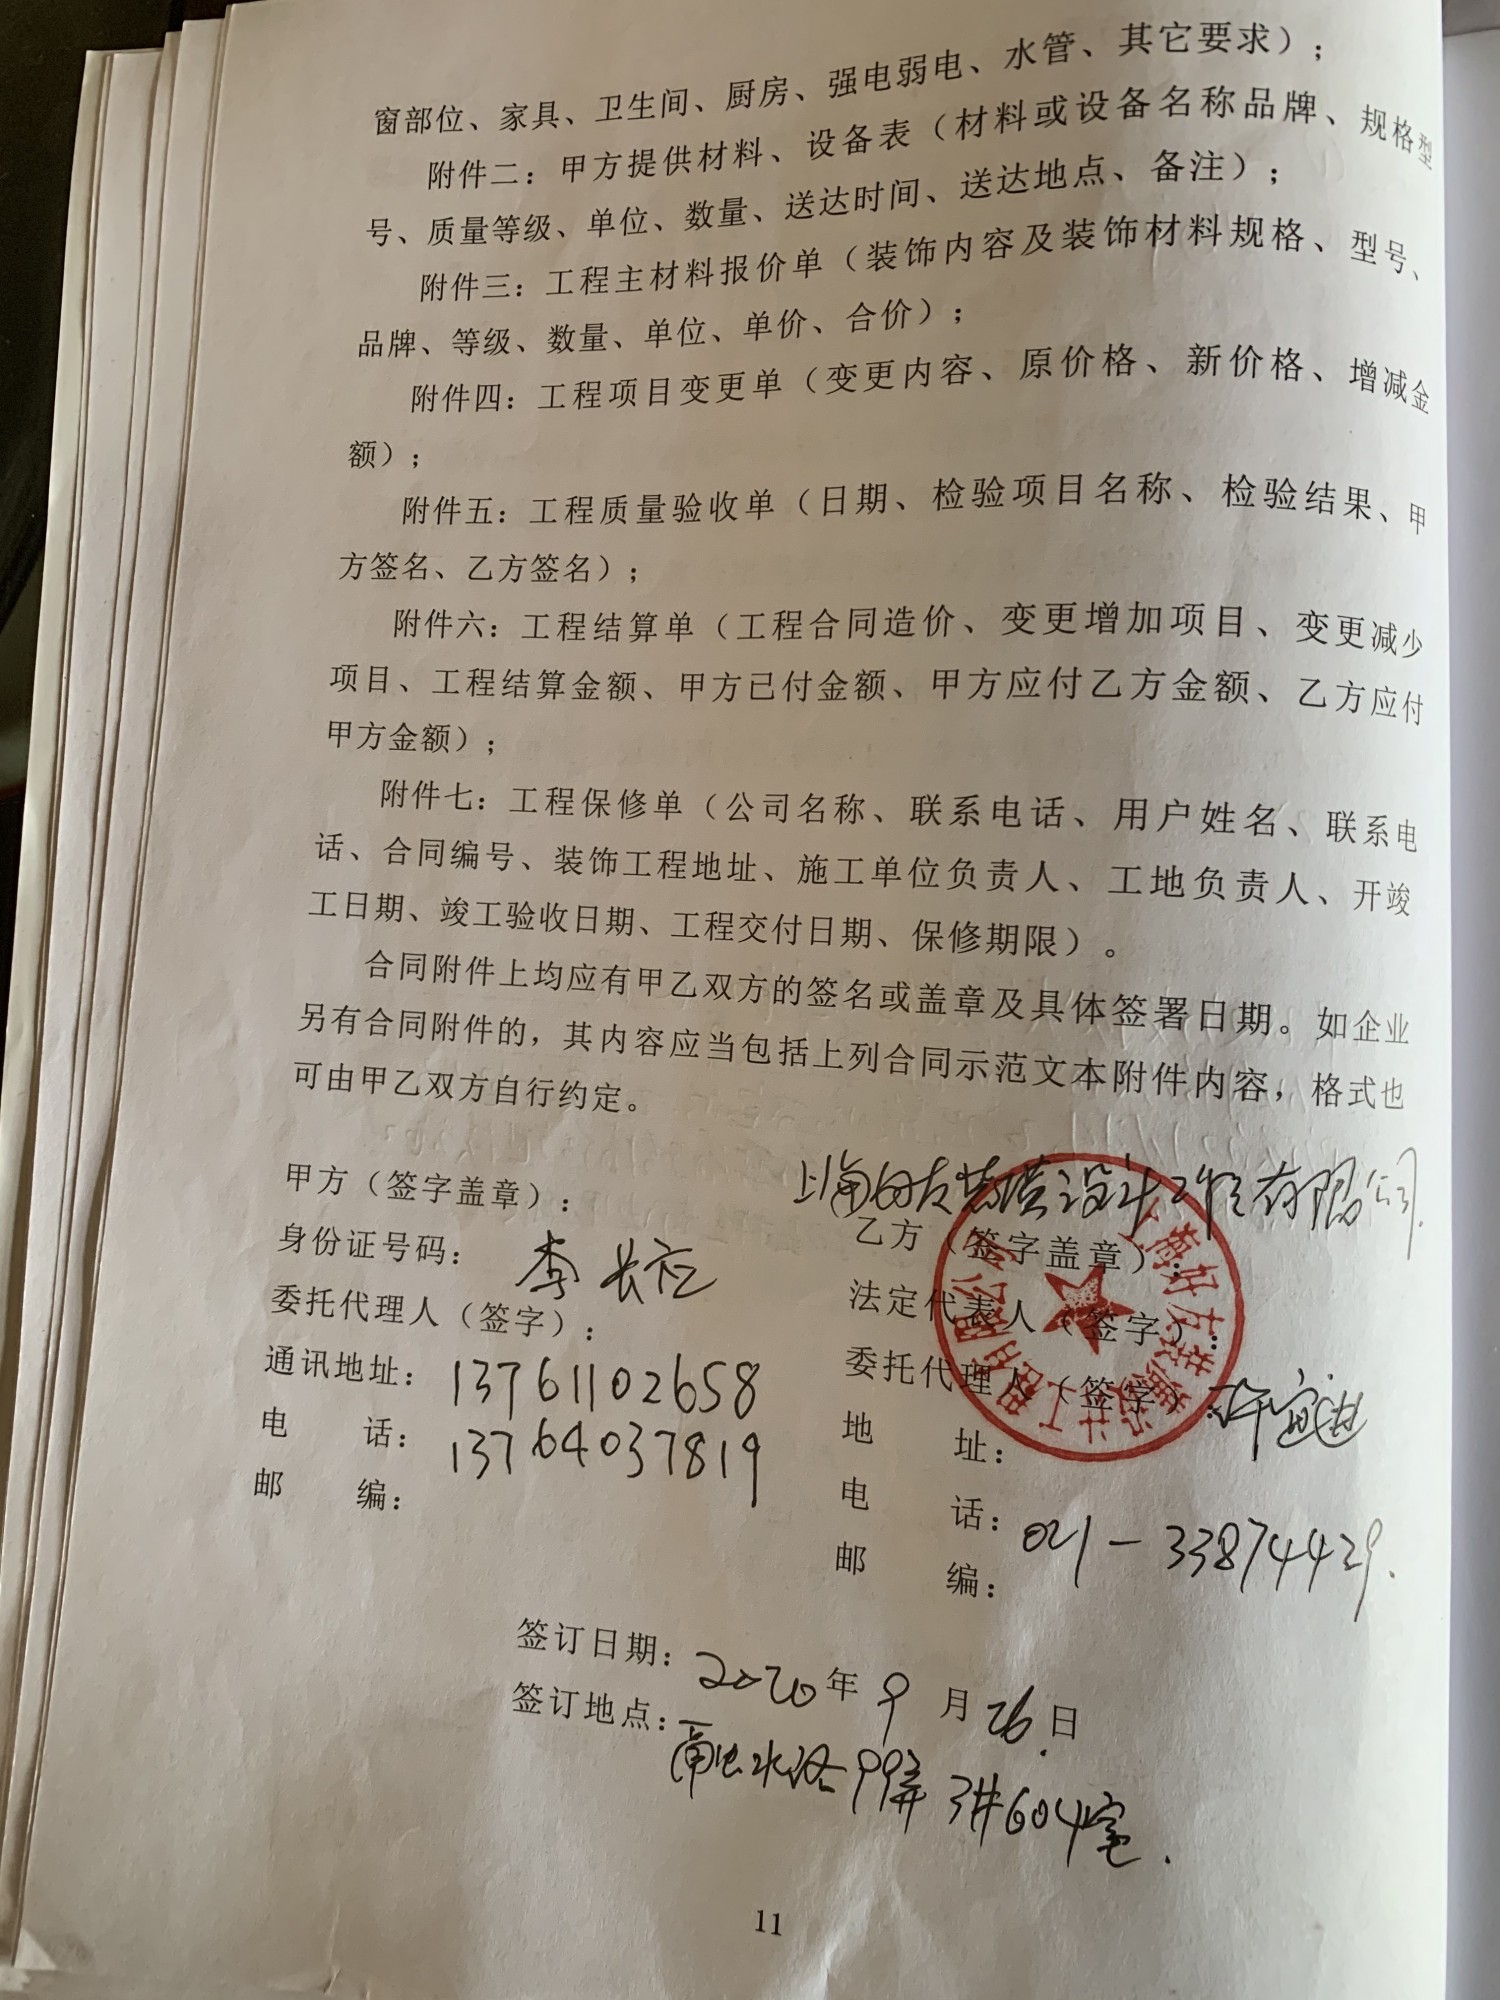 窗部位、家具、卫生间、厨房、强电弱电、水管、其它要求）；
附件二：甲方提供材料、设备表（材料或设备名称品牌、规格型
号、质量等级、单位、数量、送达时间、送达地点、备注）；
附件三：工程主材料报价单（装饰内容及装饰材料规格、型号、
品牌、等级、数量、单位、单价、合价）；
附件四：工程项目变更单（变更内容、原价格、新价格、增减金
额）；
附件五：工程质量验收单（日期、检验项目名称、检验结果、甲
方签名、乙方签名）；
附件六：工程结算单（工程合同造价、变更增加项目、变更减少
项目、工程结算金额、甲方已付金额、甲方应付乙方金额、乙方应付
甲方金额）；
附件七：工程保修单（公司名称、联系电话、用户姓名、联系电
话、合同编号、装饰工程地址、施工单位负责人、工地负责人、开竣
工日期、竣工验收日期、工程交付日期、保修期限）。
合同附件上均应有甲乙双方的签名或盖章及具体签署日期。如企业
另有合同附件的，其内容应当包括上列合同示范文本附件内容，格式也
可由甲乙双方自行约定。
甲方（签字盖章）：
身份证号码：
李长
委托代理人（签字）：
通讯地址：13761102658
电 话：13764037819
邮 编：
上海好友装潢设计工程有限公司
乙方（签字盖章）：
法定代表人（签字）：
委托代理人（签字）：许
地 址：
电 话：021-33874429.
邮 编：
上海好友装潢设计工程有限公司
签订日期：2020年9月26日
签订地点：水路99弄3#604室.
11